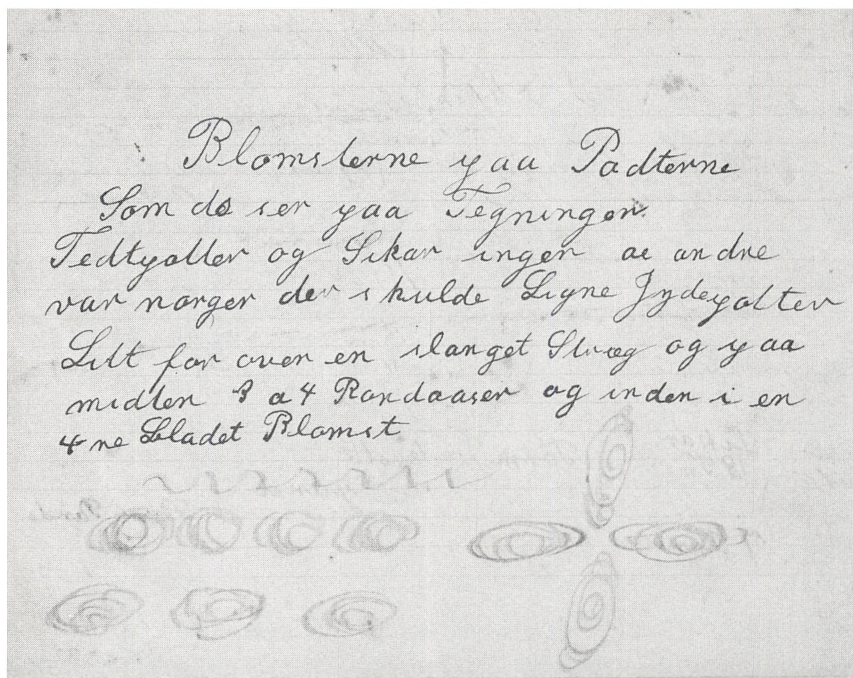 Blomsterne paa Padterne
Som de ser paa Tegningen
Tedtpotter og Sikar ingen ae andre
var norger der skulde Ligne Jydepotter
Lilt for over en slanget Stræg og paa
midten 3 a 4 Rondaaser og inden i en
4 ne bladet Blomst